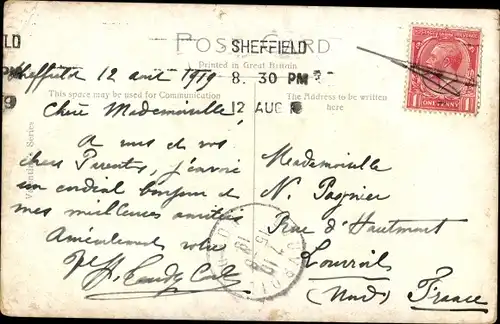 POST CARD
SHEFFIELD
8.30 PM
12 AUG
Printed in Great Britain
This space may be used for Communication
The Address to be written
here
Valentine's Series
POSTAGE
ONE PENNY
Sheffield 12 août 1919
Chère Mademoiselle,
A vous et vos
chers Parents, j'envoie
un cordial bonjour et
mes meilleures amitiés
Amicalement votre
Mademoiselle
N. Pagnier
Rue d'Hautmont
Louvroil
(Nord) France